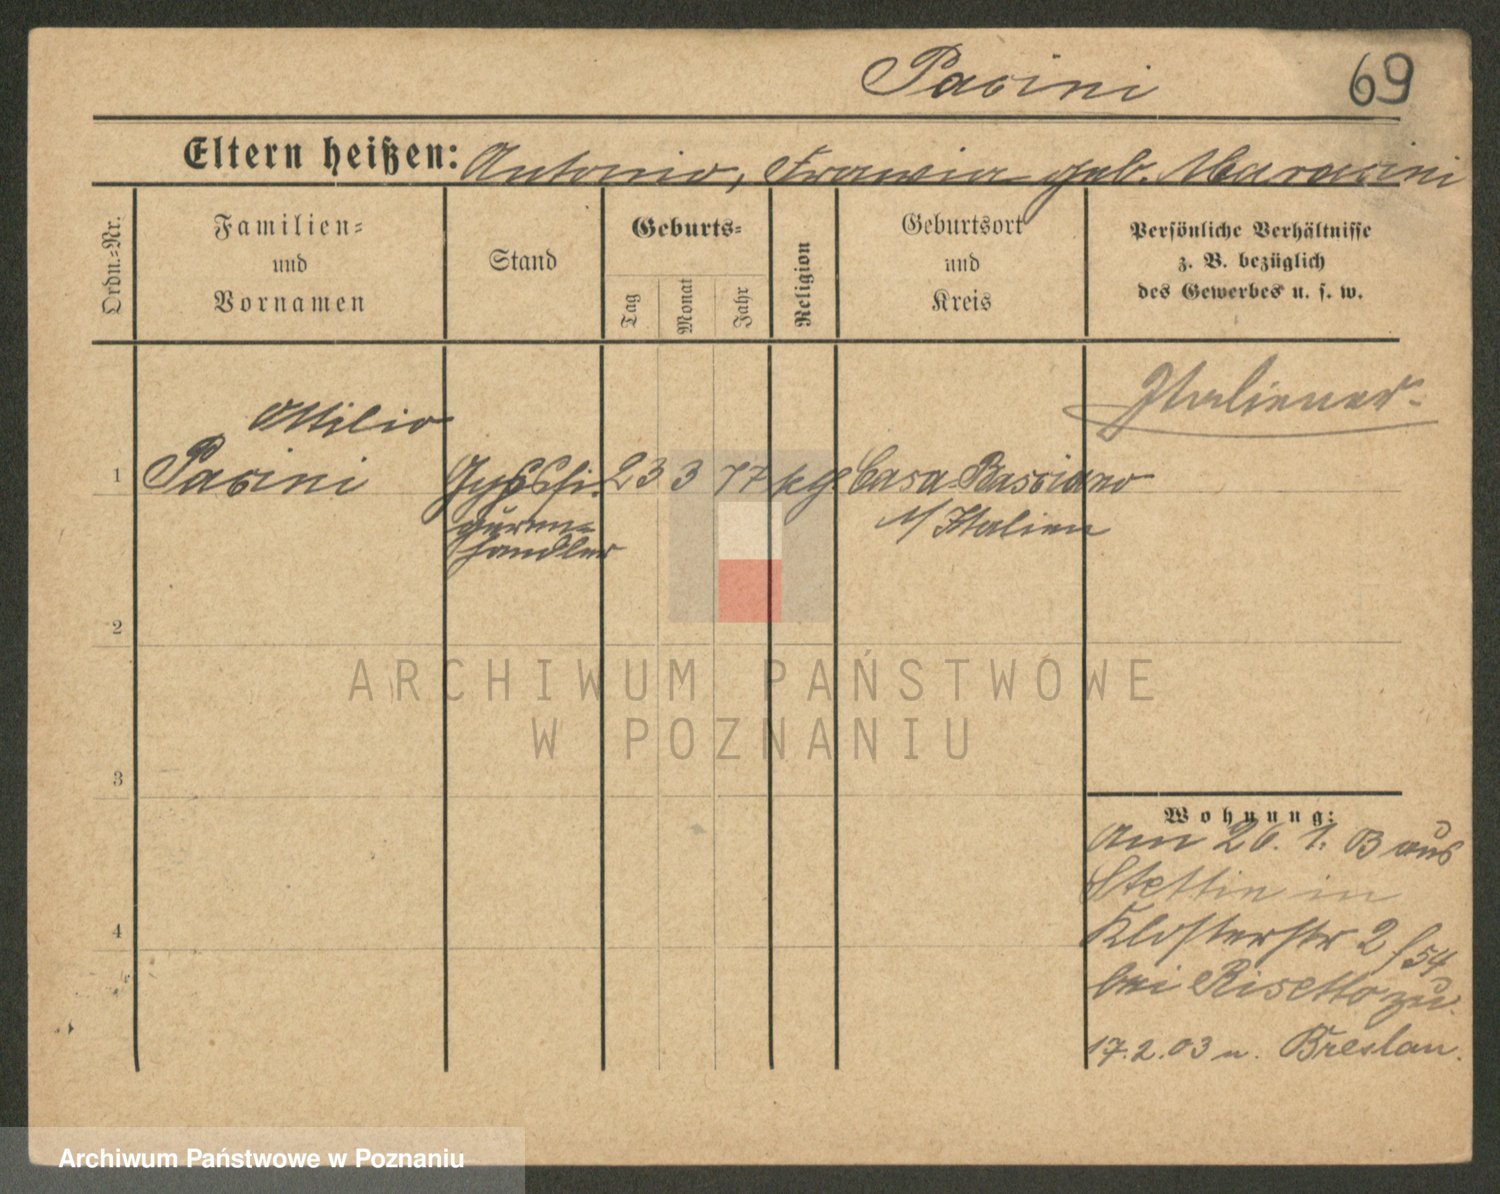 Pasini
69
Eltern heißen: Antonio, geb. Marasini
Ordn.-Nr.
Familien-
und
Vornamen
Stand
Geburts-
Tag
Monat
Jahr
Religion
Geburtsort
und
Kreis
Persönliche Verhältnisse
z. B. bezüglich
des Gewerbes u. s. w.
Italiener.
1
Attilio
Pasini
Gypsfi-
guren-
händler
23
3
77
kg.
Casa-Basciano
i/Italien
2
3
4
ARCHIWUM PAŃSTWOWE
W POZNANIU
Wohnung:
Am 26. 1. 03 aus
Stettin in
Klosterstr 2
bei Risetto zu.
17.2.03 n. Breslau.
Archiwum Państwowe w Poznaniu